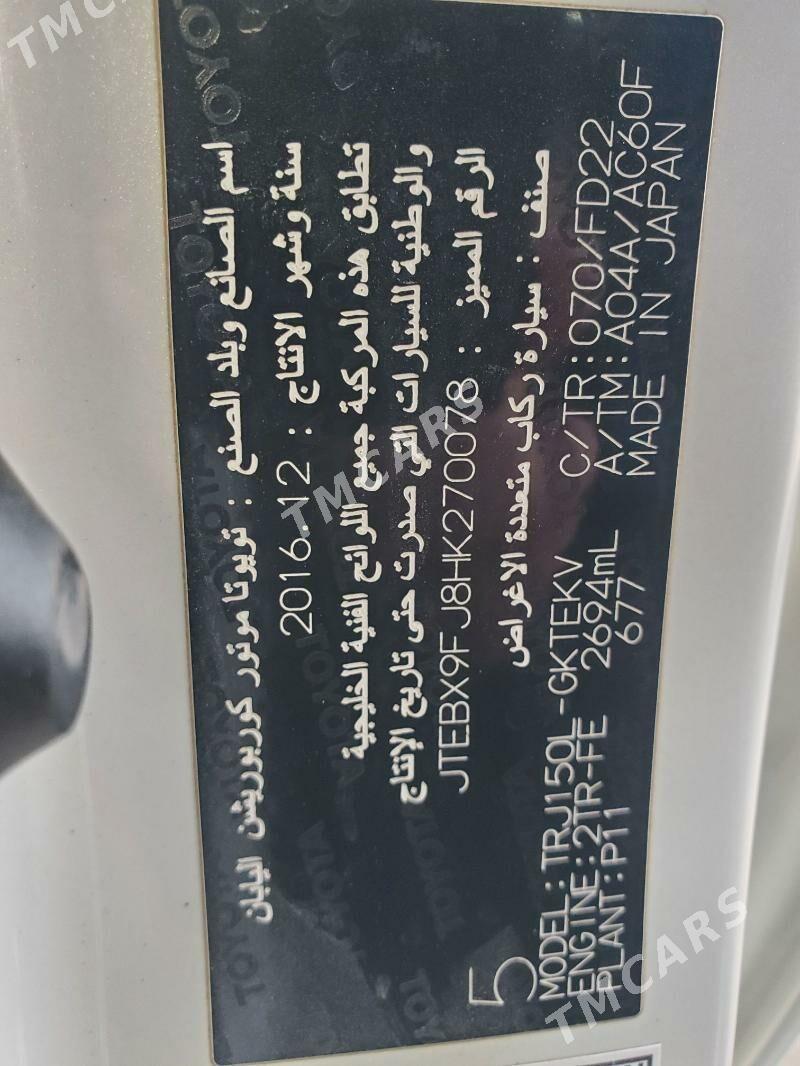 اسم الصانع وبلد الصنع : تويوتا موتور كوربوريشن اليابان
سنة وشهر الانتاج : 2016.12
تطابق هذه المركبة جميع اللوائح الفنية الخليجية
والوطنية للسيارات التي صدرت حتى تاريخ الإنتاج
الرقم المميز : JTEBX9FJ8HK270078
صنف : سيارة ركاب متعددة الاغراض
5
MODEL:TRJ150L-GKTEKV C/TR:070/FD22
ENGINE:2TR-FE 2694mL A/TM:A04A/AC60F
PLANT:P11 677 MADE IN JAPAN
TMCARS
TMCARS
TMCARS